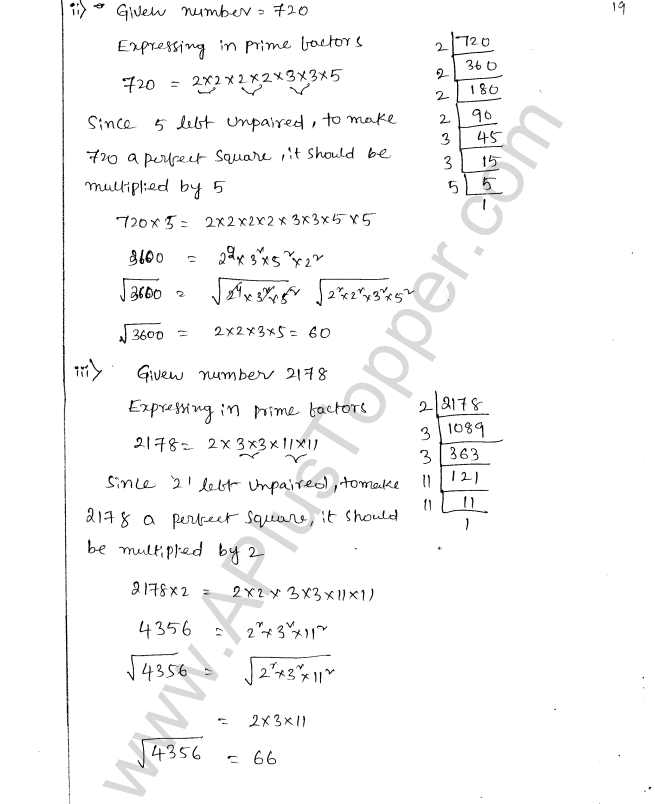 19
ii) Given number = 720
Expressing in prime factors
720 = 2×2×2×2×3×3×5
2 | 720
2 | 360
2 | 180
2 | 90
3 | 45
3 | 15
5 | 5
1
Since 5 left unpaired, to make
720 a perfect square, it should be
multiplied by 5
720×5 = 2×2×2×2×3×3×5×5
3600 = 2²×3²×5²×2²
√3600 = √2⁴×3²×5² √2²×2²×3²×5²
√3600 = 2×2×3×5 = 60
iii) Given number 2178
Expressing in prime factors
2178 = 2×3×3×11×11
2 | 2178
3 | 1089
3 | 363
11 | 121
11 | 11
1
Since '2' left unpaired, to make
2178 a perfect square, it should
be multiplied by 2
2178×2 = 2×2×3×3×11×11
4356 = 2²×3²×11²
√4356 = √2²×3²×11²
= 2×3×11
√4356 = 66
www.APlusTopper.com